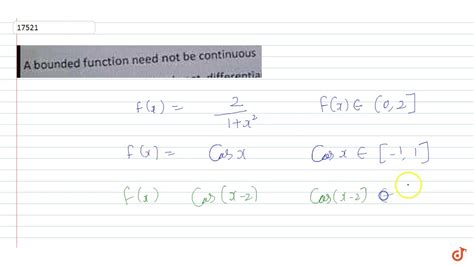 17521
A bounded function need not be continuous
differentia
f(x) = 2/(1+x²) f(x) ∈ (0, 2]
f(x) = Cos x Cos x ∈ [-1, 1]
f(x) Cos(x-2) Cos(x-2) ∈